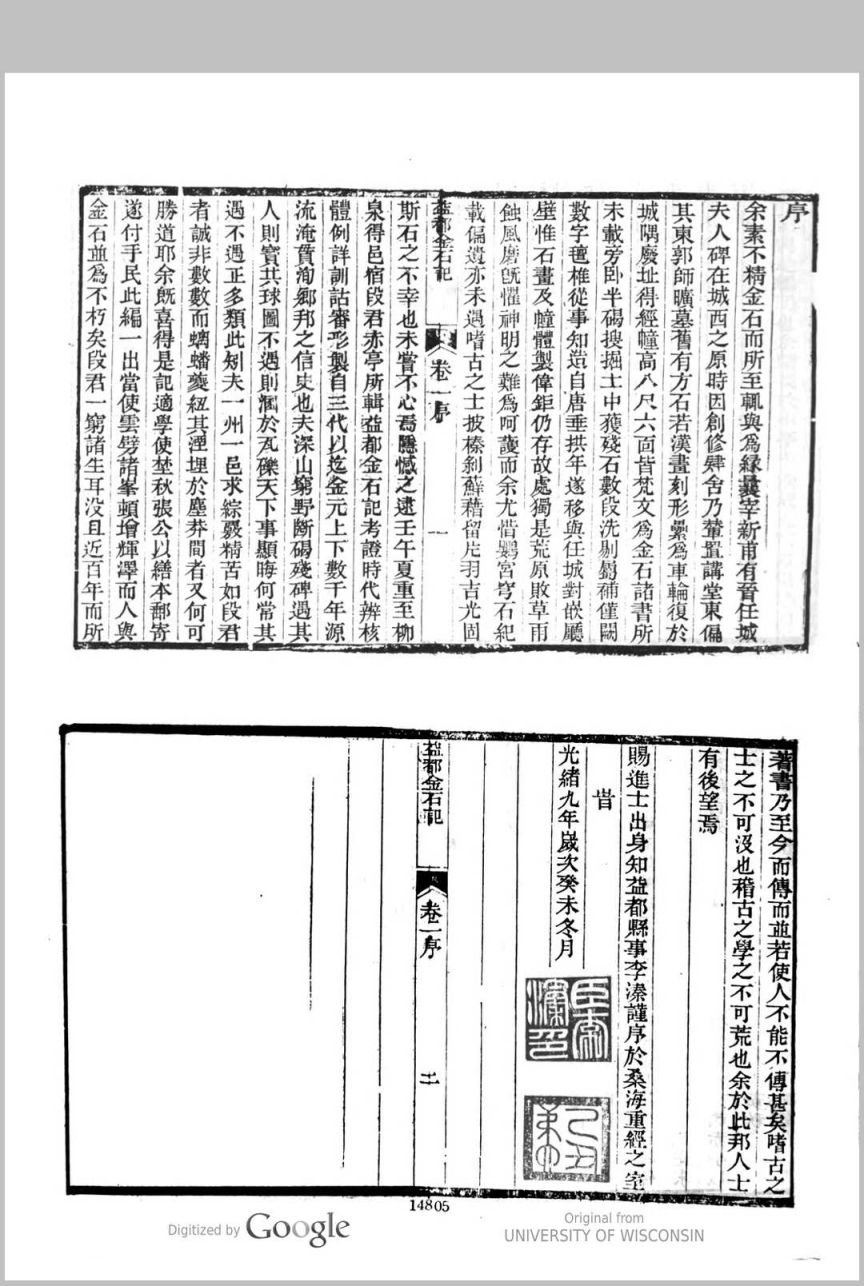 序
余素不精金石而所至輒與爲緣曩宰新甫有晉任城
夫人碑在城西之原時因創修肄舍乃輦置講堂東偏
其東郭師曠墓舊有方石若漢畫刻形纍爲車輪復於
城隅廢址得經幢高八尺六面皆梵文爲金石諸書所
未載旁卧半碣搜掘土中獲殘石數段洗剔蜀補僅闕
數字氊椎從事知造自唐垂拱年遂移與任城對嵌廳
壁惟石畫及幢體製偉鉅仍存故處獨是荒原敗草雨
蝕風磨旣懼神明之難爲呵護而余尤惜鷃宮穹石紀
載偏遺亦未遇嗜古之士披榛剝蘚藉留片羽吉光固
益都金石記
卷一序
一
斯石之不幸也未嘗不心焉隱憾之逮壬午夏重至柳
泉得邑宿段君赤亭所輯益都金石記考證時代辨核
體例詳訓詁審形製自三代以迄金元上下數千年源
流淹貫洵鄉邦之信史也夫深山窮野斷碣殘碑遇其
人則寶共球圖不遇則溷於瓦礫天下事顯晦何常其
遇不遇正多類此矧夫一州一邑求綜覈精苦如段君
者誠非數數而螭蟠夔紐其湮埋於塵莽間者又何可
勝道耶余旣喜得是記適學使埜秋張公以繕本郵寄
遂付手民此編一出當使雲劈諸峯頓增輝澤而人與
金石並爲不朽矣段君一窮諸生耳沒且近百年而所
著書乃至今而傳而並若使人不能不傳甚矣嗜古之
士之不可沒也稽古之學之不可荒也余於此邦人士
有後望焉
賜進士出身知益都縣事李溱謹序於桑海重經之室
旹
光緒九年嵗次癸未冬月
益都金石記
卷一序
二
14805
Digitized by Google
Original from
UNIVERSITY OF WISCONSIN